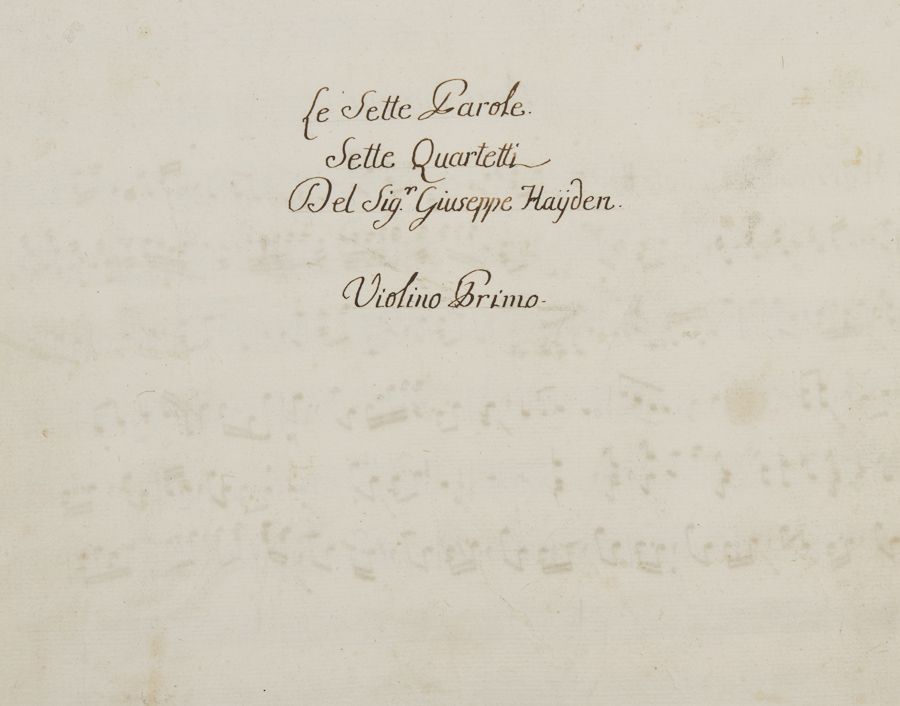 Le Sette Parole.
Sette Quartetti
Del Sig.r Giuseppe Haÿden.
Violino Primo.